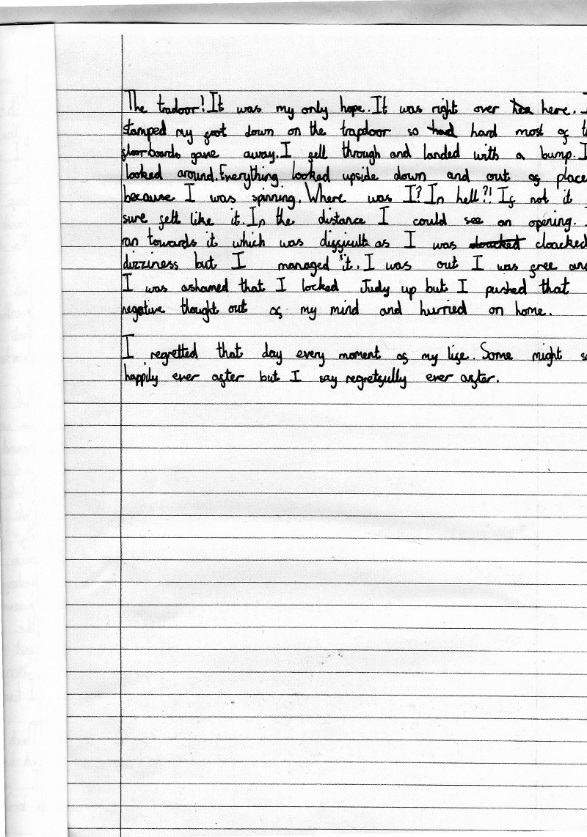 The tradoor! It was my only hope. It was right over here. I
stamped my foot down on the trapdoor so hard most of t
floorboards gave away. I fell through and landed with a bump. I
looked around. Everything looked upside down and out of place
because I was spinning. Where was I? In hell?! If not it
sure felt like it. In the distance I could see an opening.
ran towards it which was difficult as I was cloaked
dizziness but I managed it. I was out I was free an
I was ashamed that I locked Judy up but I pushed that
negative thought out of my mind and hurried on home.
I regretted that day every moment of my life. Some might s
happily ever after but I say regretfully ever after.